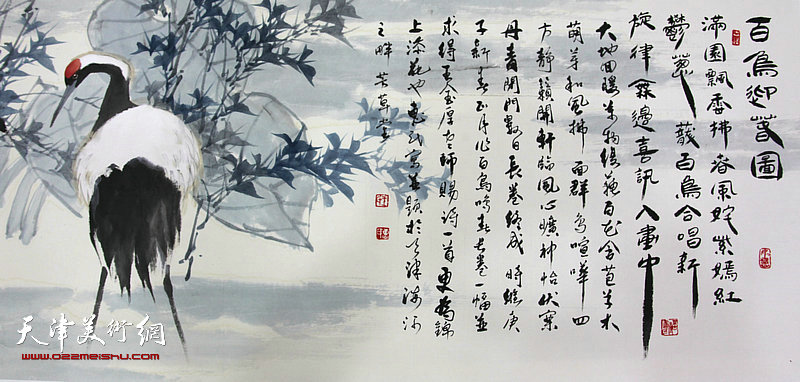 百鳥迎春圖
滿園飄香拂春風姹紫嫣紅
鬱蔥蘢百鳥合唱新
旋律無邊喜訊入畫中
大地回暖萬物復蘇百花含苞草木
萌芽和風拂面群鳥喧嘩四
方靜籟開軒臨風心曠神怡伏案
丹青閉門數日長卷終成時維庚
子新春正月作百鳥鳴春長卷一幅並
求得王金厚老師賜詩一首更為錦
上添花也 寫並題於天津海河
之畔 草堂
天津美術網
www.022meishu.com